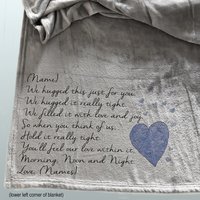 (Name)
We hugged this just for you
We hugged it really tight
We filled it with love and joy
So when you think of us
Hold it really tight
You'll feel our love within it
Morning, Noon and Night
Love, (Names)
(lower left corner of blanket)